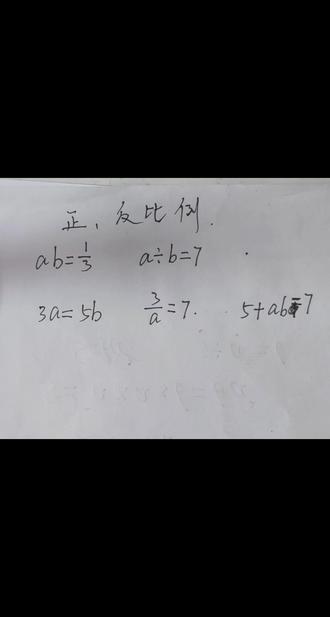 正、反比例.
ab=1/3 a÷b=7
3a=5b 3/a=7. 5+ab=7